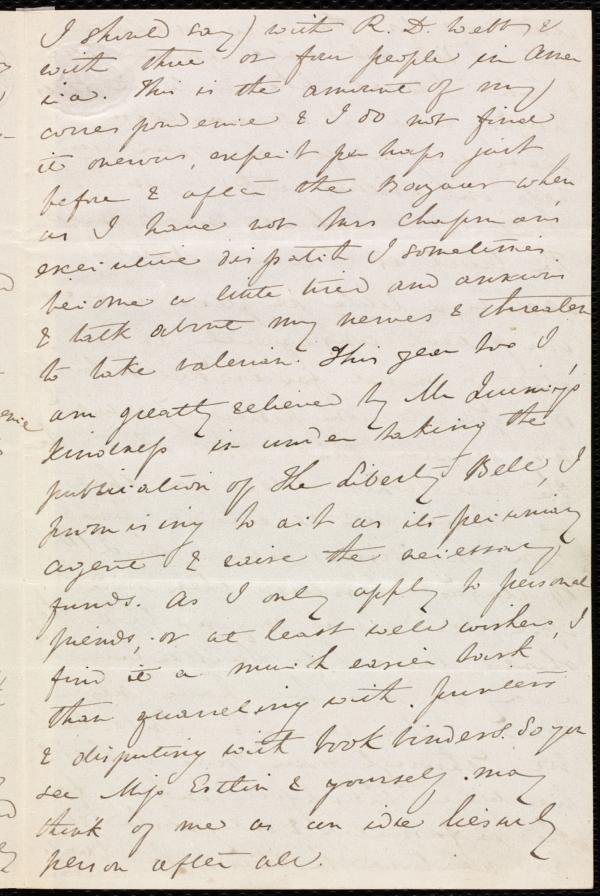 I should say) with R. D. Webb, &
with three or four people in Ame
rica. This is the amount of my
correspondence & I do not find
it onerous, expect perhaps just
before & after the Bazaar when
as I have not Mrs Chapman's
executive dispatch I sometimes
become a little tired and anxious
& talk about my nerves & threaten
to take valerian. This year too I
am greatly relieved by Mr Quincy's
kindness in undertaking the
publication of The Liberty Bell, I
promising to act as its pecuniary
agent & raise the necessary
funds. As I only apply to personal
friends, or at least well wishers, I
find it a much easier task
than quarreling with printers
& disputing with book binders. So you
see Miss Estlin & yourself may
think of me as an idle leisurely
person after all.